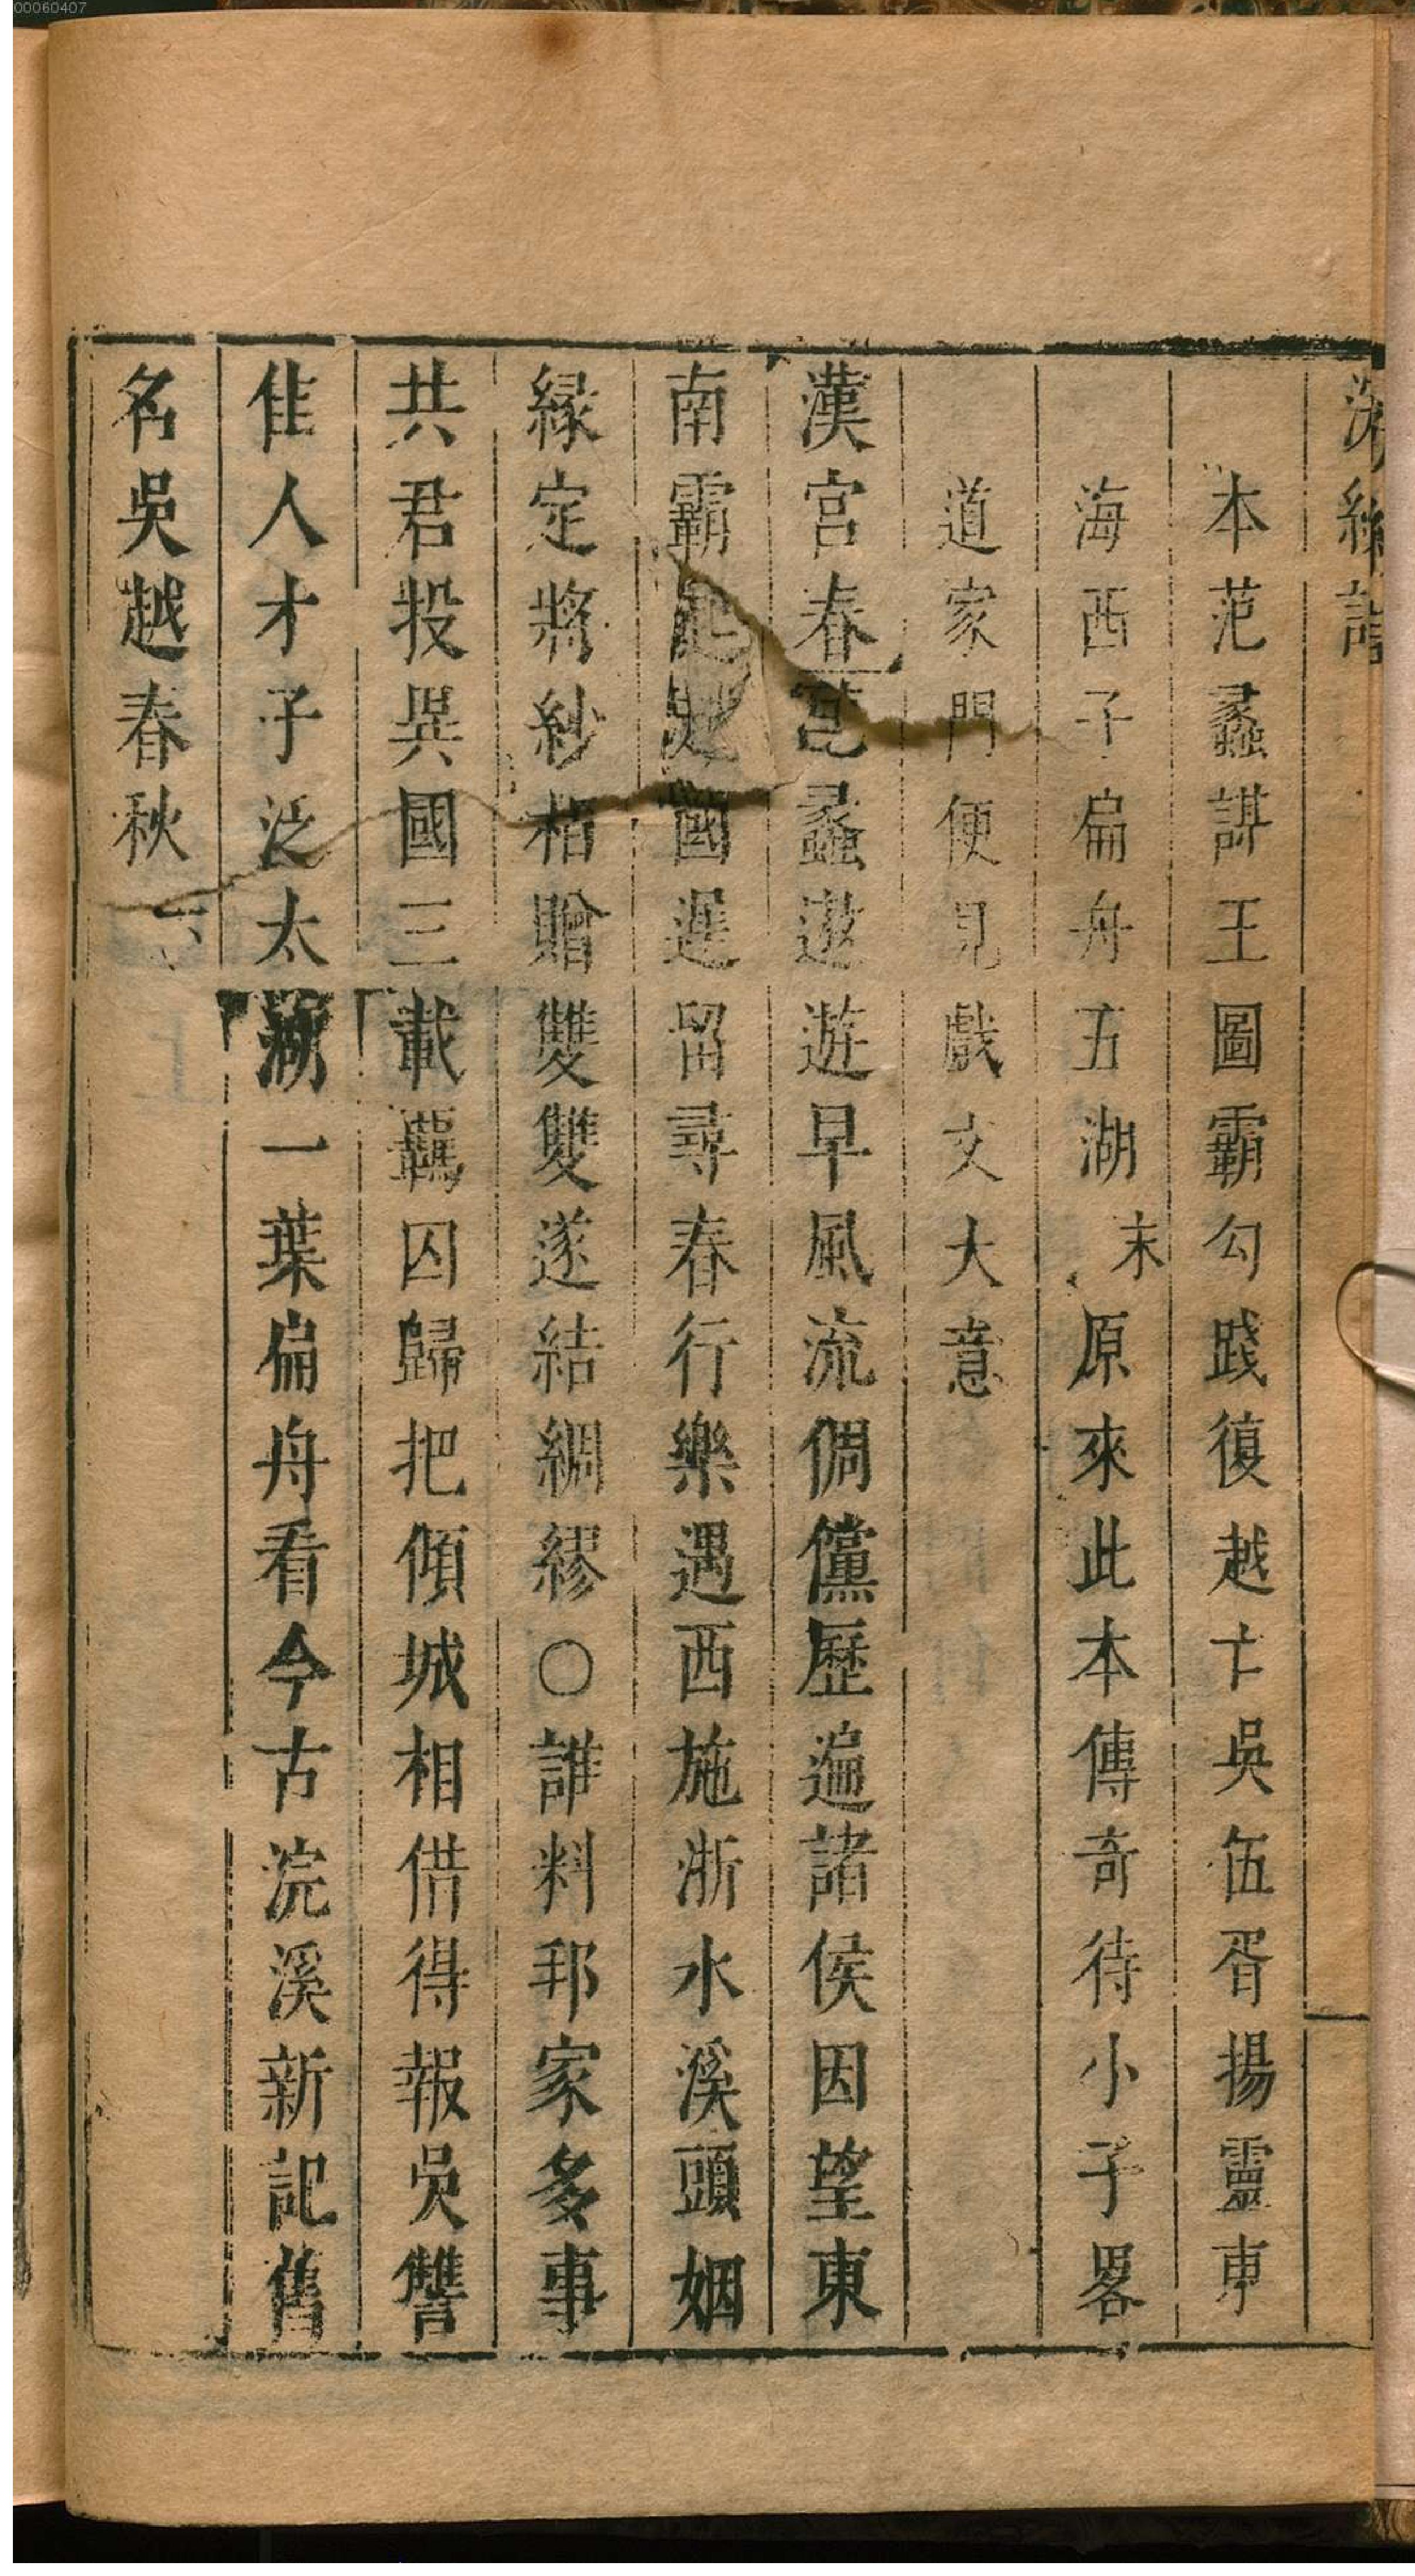 00060407
浣紗記
本范蠡謀王圖霸勾踐復越亡吳伍胥揚靈東
海西子扁舟五湖 末 原來此本傳奇待小子畧
道家門便見戲文大意
漢宮春 范蠡遨遊早風流倜儻歷遍諸侯因望東
南霸起越國遲留尋春行樂遇西施浙水溪頭姻
緣定將紗相贈雙雙遂結綢繆○誰料邦家多事
共君投吳國三載羈囚歸把傾城相借得報吳讐
佳人才子泛太湖一葉扁舟看今古浣溪新記舊
名吳越春秋